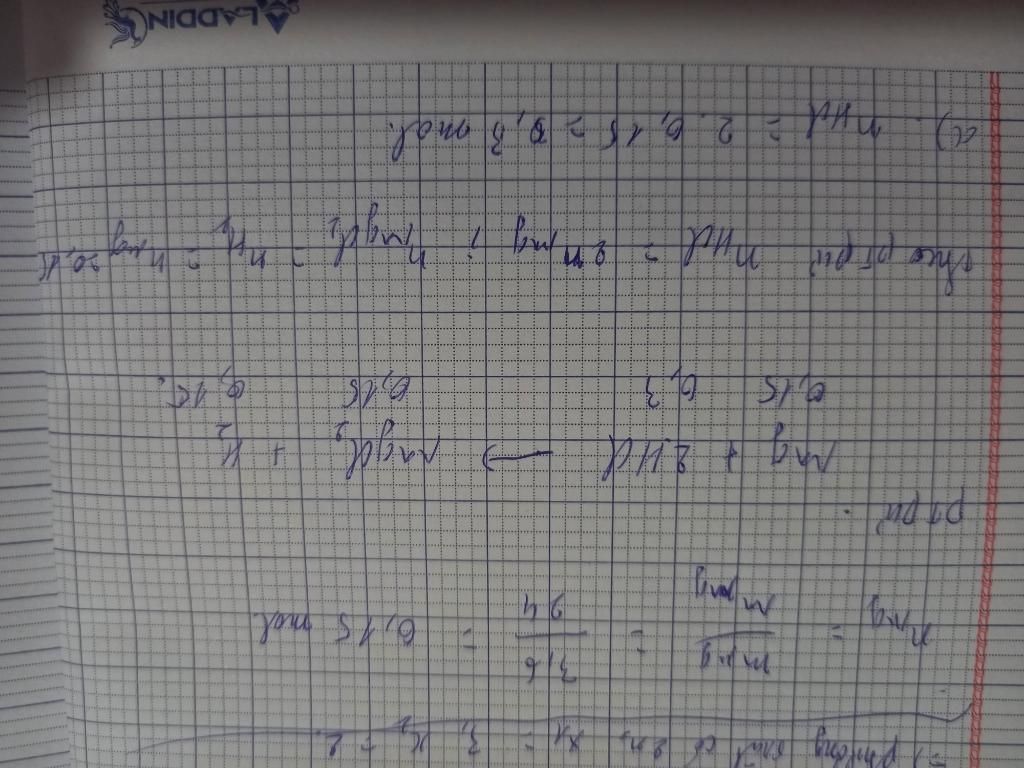 =) phương trình có 2 n₀ x₁ = 3, x₂ = 2.
nMg = mMg / MMg = 3,6 / 24 = 0,15 mol.
PTPỨ.
Mg + 2HCl → MgCl₂ + H₂
0,15 0,3 0,15 0,15.
theo PTPỨ nHCl = 2nMg ; nMgCl₂ = nH₂ = nMg = 0,15
a). nHCl = 2. 0,15 = 0,3 mol.
ALADDIN